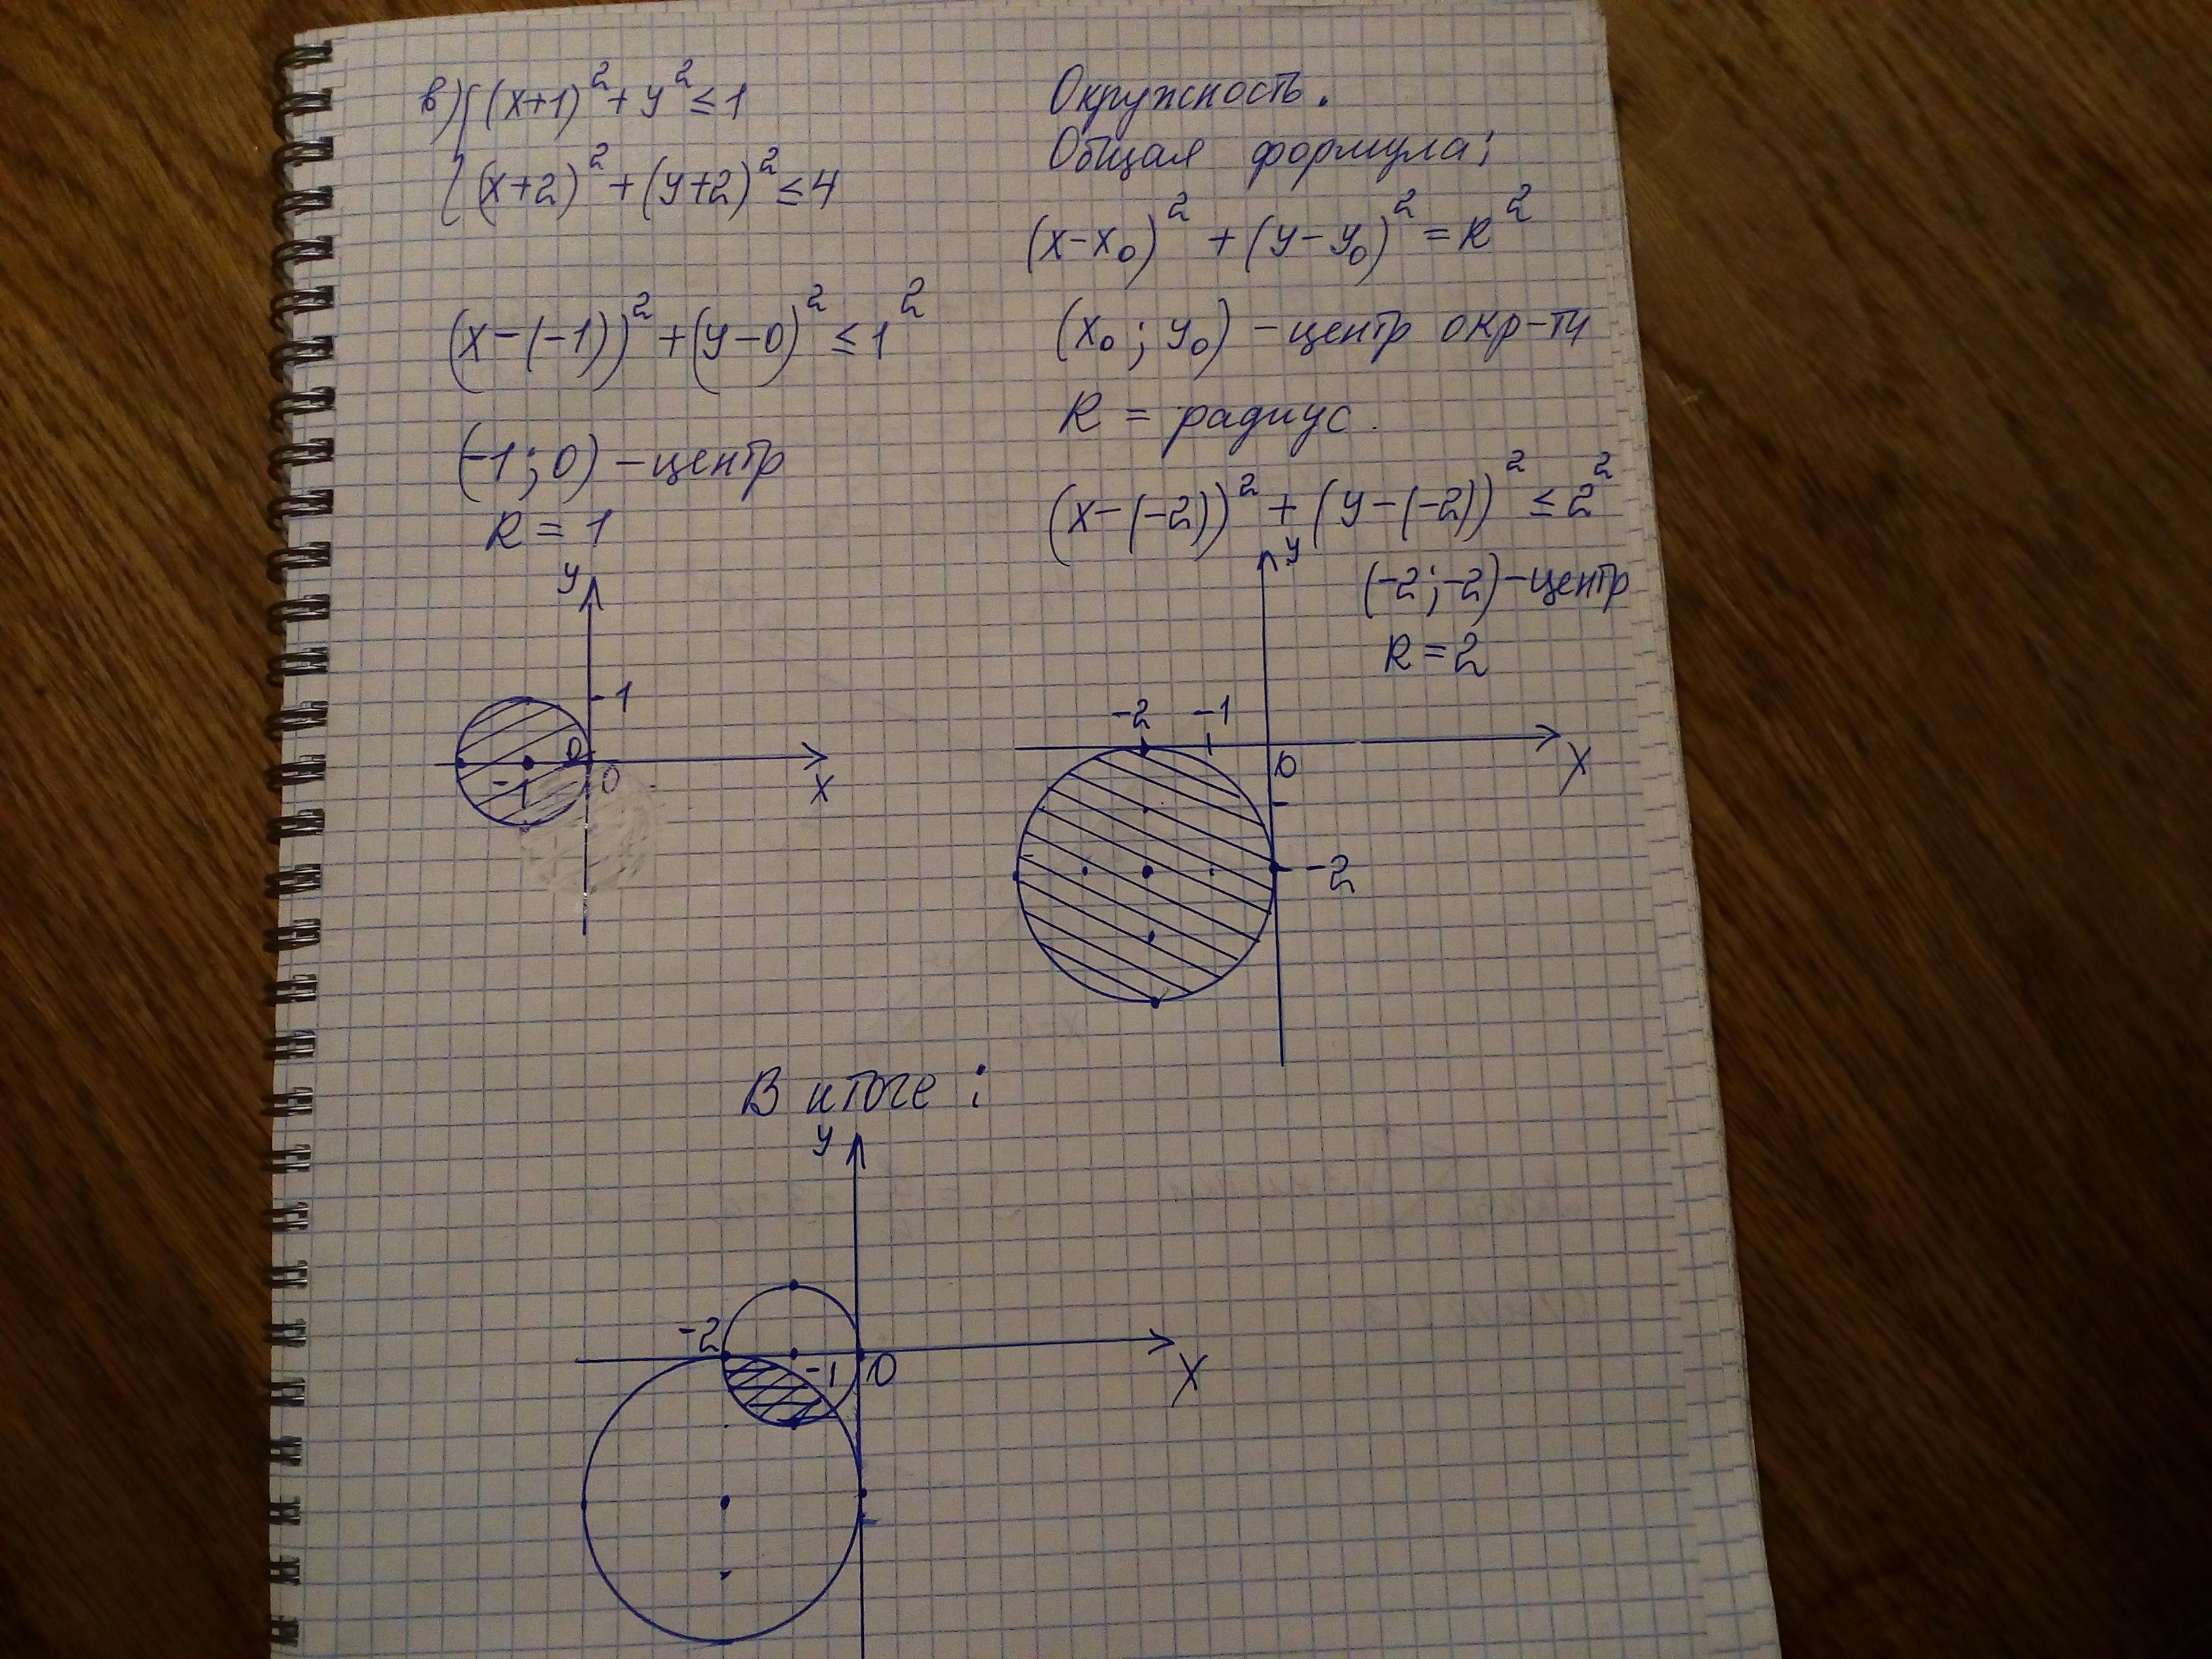 в) { (x+1)² + y² ≤ 1
(x+2)² + (y+2)² ≤ 4
Окружность.
Общая формула:
(x-x₀)² + (y-y₀)² = R²
(x₀; y₀) - центр окр-ти
R = радиус.
(x-(-1))² + (y-0)² ≤ 1²
(-1; 0) - центр
R = 1
(x-(-2))² + (y-(-2))² ≤ 2²
(-2; -2) - центр
R = 2
y
1
0
-1
0
x
y
-2 -1
0
x
-2
В итоге:
y
-2
-1
0
x